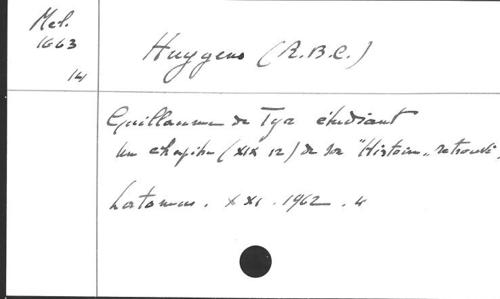 Mel.
1663
14
Huygens (R.B.C.)
Guillaume de Tyr étudiant
Un chapitre (XIX 12) de son "Histoire" retrouvé.
Latomus. XXI. 1962. 4